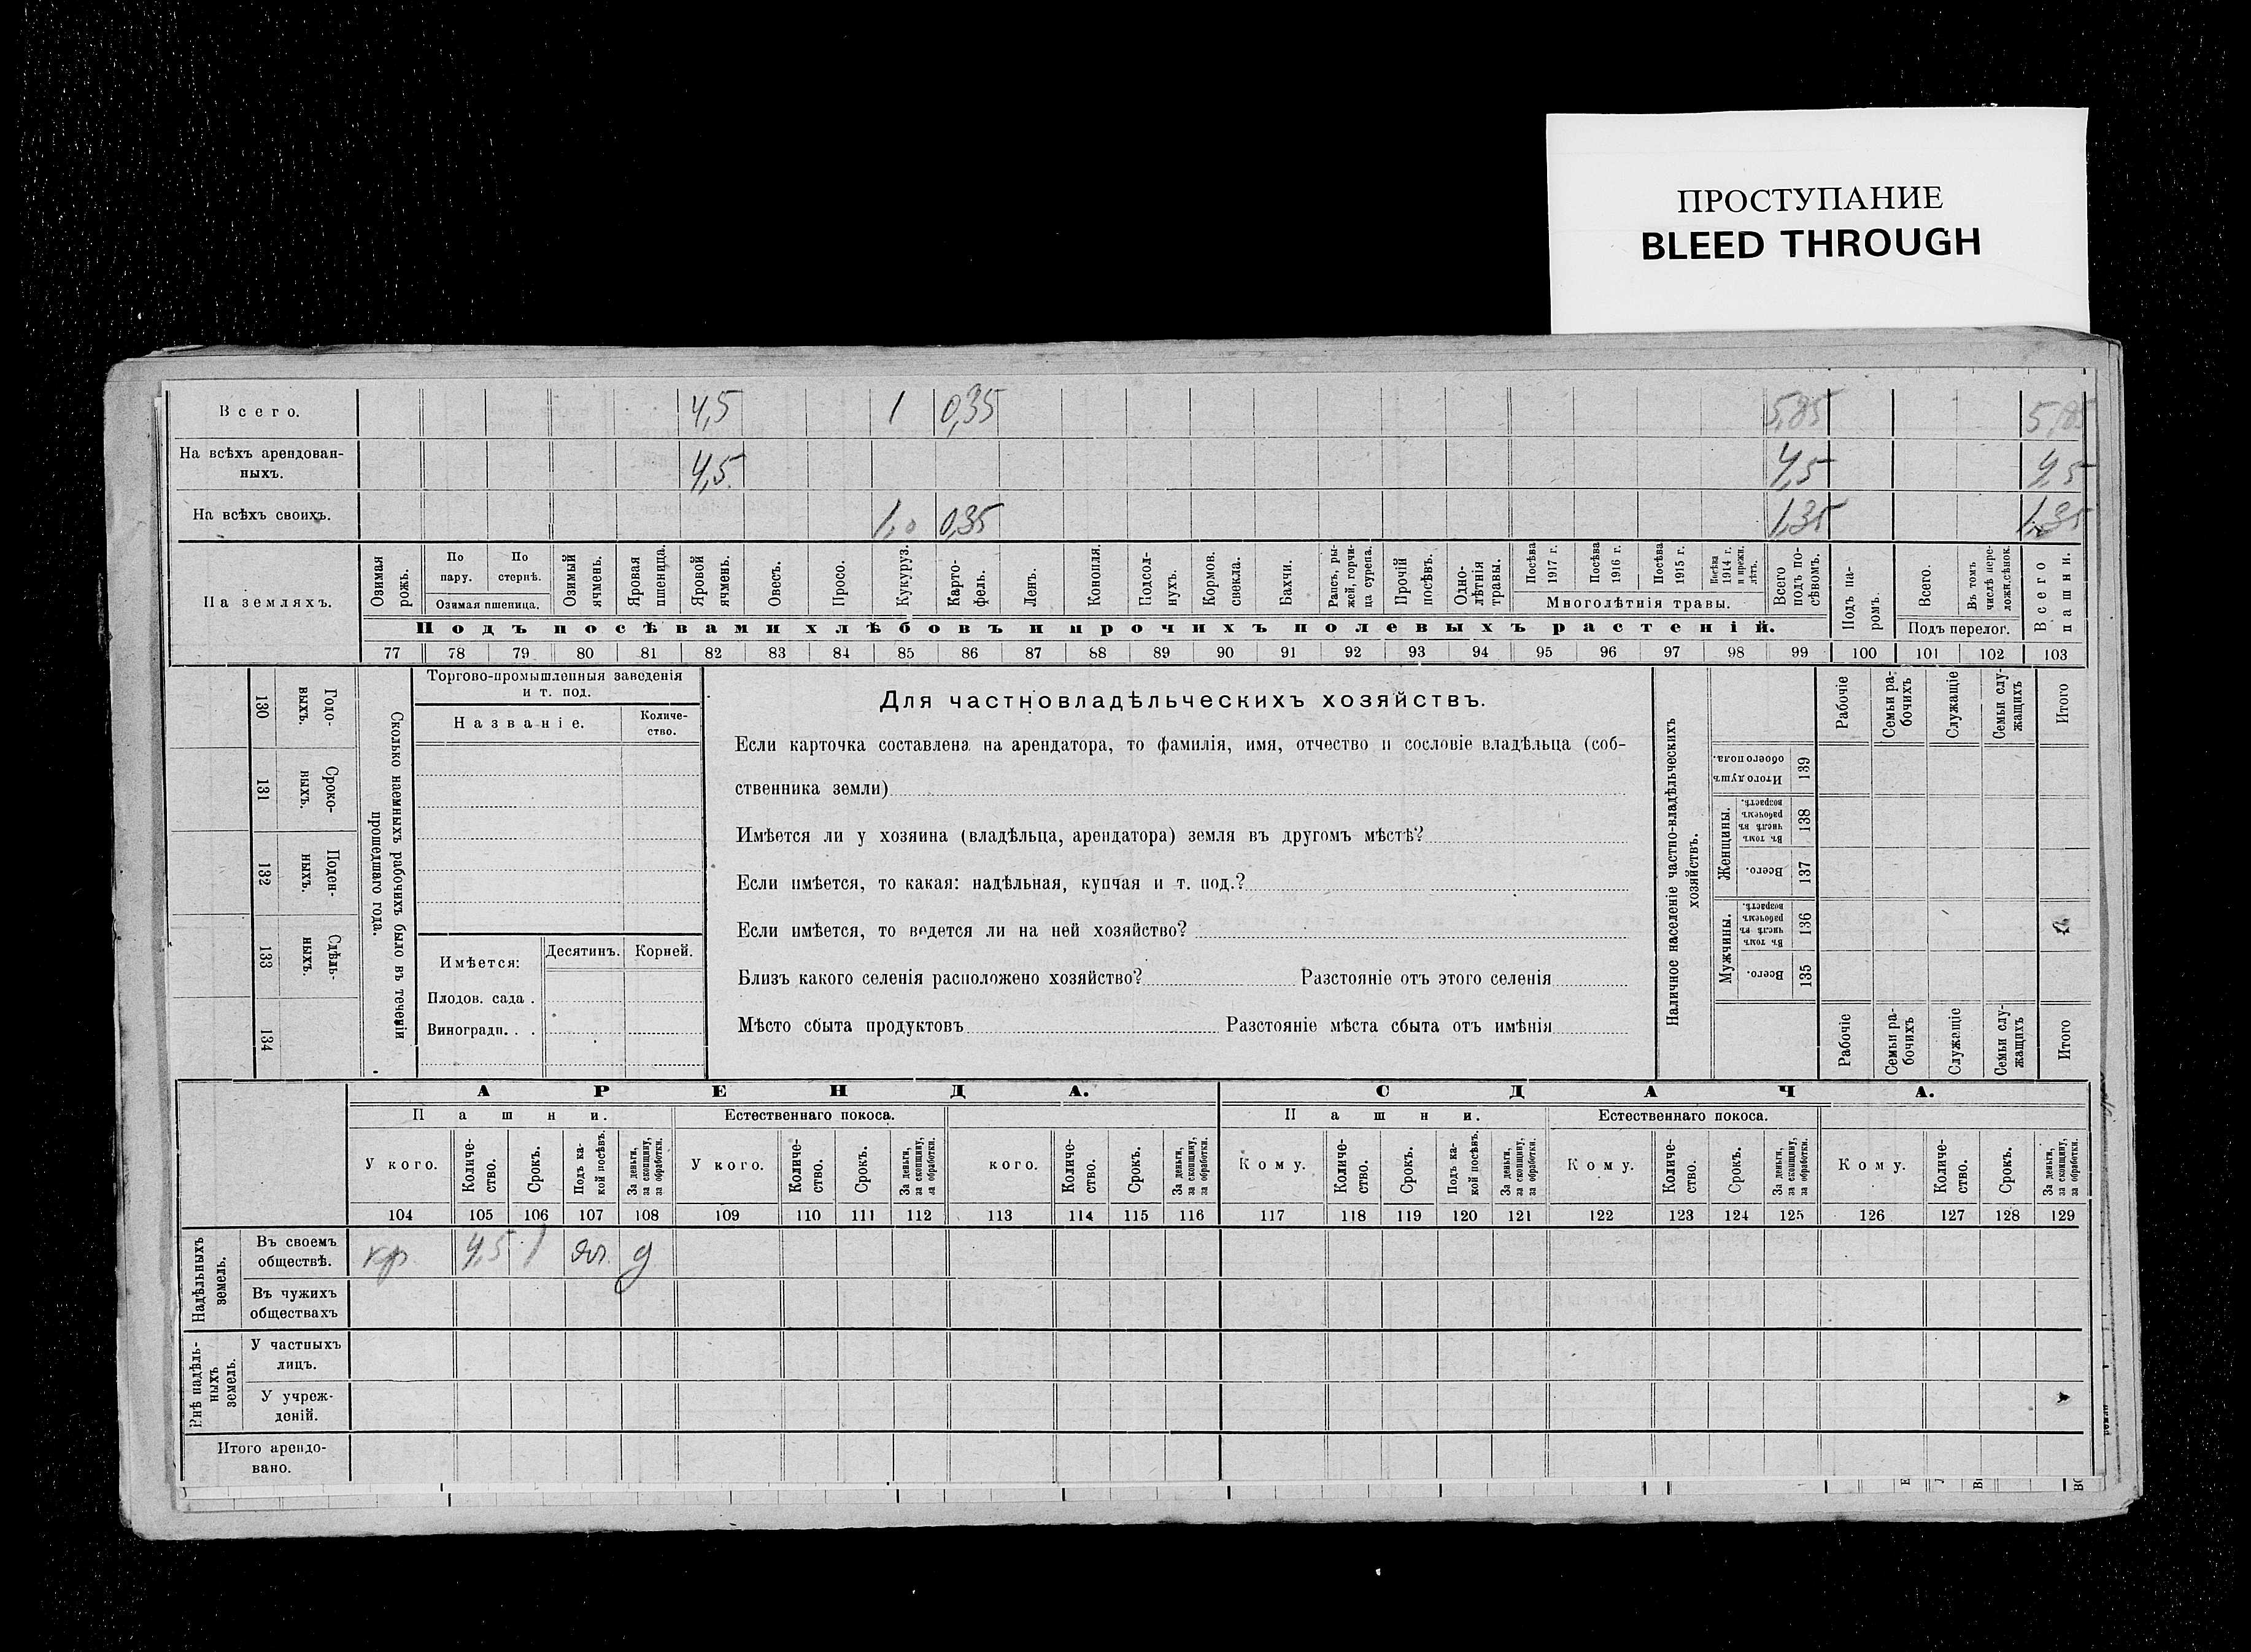 ПРОСТУПАНИЕ
BLEED THROUGH
Всего. 4,5 1 0,35 5,85 5,85
На всѣхъ арендован-
ныхъ. 4,5 4,5 4,5
На всѣхъ своихъ. 1,0 0,35 1,35 1,35
На земляхъ.
Озимая рожь.
По пару.
По стернѣ.
Озимая пшеница.
Озимый ячмень.
Яровая пшеница.
Яровой ячмень.
Овесъ.
Просо.
Кукуруз.
Карто-
фель.
Ленъ.
Конопля.
Подсол-
нухъ.
Кормов.
свекла.
Бахчи.
Рапсъ, ры-
жей, горчи-
ца сурепа.
Прочій
посѣвъ.
Одно-
лѣтнія
травы.
Посѣва
1917 г.
Посѣва
1916 г.
Посѣва
1915 г.
Посѣва
1914 г.
и прежн.
лѣтъ.
Многолѣтнія травы.
Всего
подъ по-
сѣвомъ.
Подъ па-
ромъ.
Всего.
Въ томъ
числѣ пере-
ложн.сѣнок.
Подъ перелог.
Всего
пашни.
Подъ посѣвами хлѣбовъ и прочихъ полевыхъ растеній.
77 78 79 80 81 82 83 84 85 86 87 88 89 90 91 92 93 94 95 96 97 98 99 100 101 102 103
130 Годо-
выхъ.
131 Сроко-
ныхъ.
132 Поден-
ныхъ.
133 Сдѣль-
ныхъ.
134
Сколько наемныхъ рабочихъ было въ теченіи
прошедшаго года.
Торгово-промышленныя заведенія
и т. под.
Названіе.
Количе-
ство.
Имѣется:
Десятинъ. Корней.
Плодов. сада .
Виноградн. . .
Для частновладѣльческихъ хозяйствъ.
Если карточка составлена на арендатора, то фамилія, имя, отчество и сословіе владѣльца (соб-
ственника земли)
Имѣется ли у хозяина (владѣльца, арендатора) земля въ другомъ мѣстѣ?
Если имѣется, то какая: надѣльная, купчая и т. под.?
Если имѣется, то ведется ли на ней хозяйство?
Близъ какого селенія расположено хозяйство? Разстояніе отъ этого селенія
Мѣсто сбыта продуктовъ Разстояніе мѣста сбыта отъ имѣнія
Наличное населеніе частно-владѣльческихъ
хозяйствъ.
Рабочіе
Семьи ра-
бочихъ
Служащіе
Семьи слу-
жащихъ
Итого
Итого душъ
обоего пола.
139
Женщины.
Въ томъ
числѣ въ
рабочемъ
возрастѣ.
138
Всего.
137
Мужчины.
Въ томъ
числѣ въ
рабочемъ
возрастѣ.
136
Всего.
135
Рабочіе
Семьи ра-
бочихъ
Служащіе
Семьи слу-
жащихъ
Итого
АРЕНДА. СДАЧА.
Пашни. Естественнаго покоса. Пашни. Естественнаго покоса.
У кого.
Количе-
ство.
Срокъ.
Подъ ка-
кой посѣвъ.
За деньги,
за скопщину,
за обработки.
У кого.
Количе-
ство.
Срокъ.
За деньги,
за скопщину,
за обработки.
кого.
Количе-
ство.
Срокъ.
За деньги,
за скопщину,
за обработки.
Кому.
Количе-
ство.
Срокъ.
Подъ ка-
кой посѣвъ.
За деньги,
за скопщину,
за обработки.
Кому.
Количе-
ство.
Срокъ.
За деньги,
за скопщину,
за обработки.
Кому.
Количе-
ство.
Срокъ.
За деньги,
за скопщину,
за обработки.
104 105 106 107 108 109 110 111 112 113 114 115 116 117 118 119 120 121 122 123 124 125 126 127 128 129
Надѣльныхъ
земель.
Въ своемъ
обществѣ. кр. 4,5 1 яч. д
Въ чужихъ
обществахъ
Внѣ надѣль-
ныхъ
земель.
У частныхъ
лицъ.
У учреж-
деній.
Итого арендо-
вано.